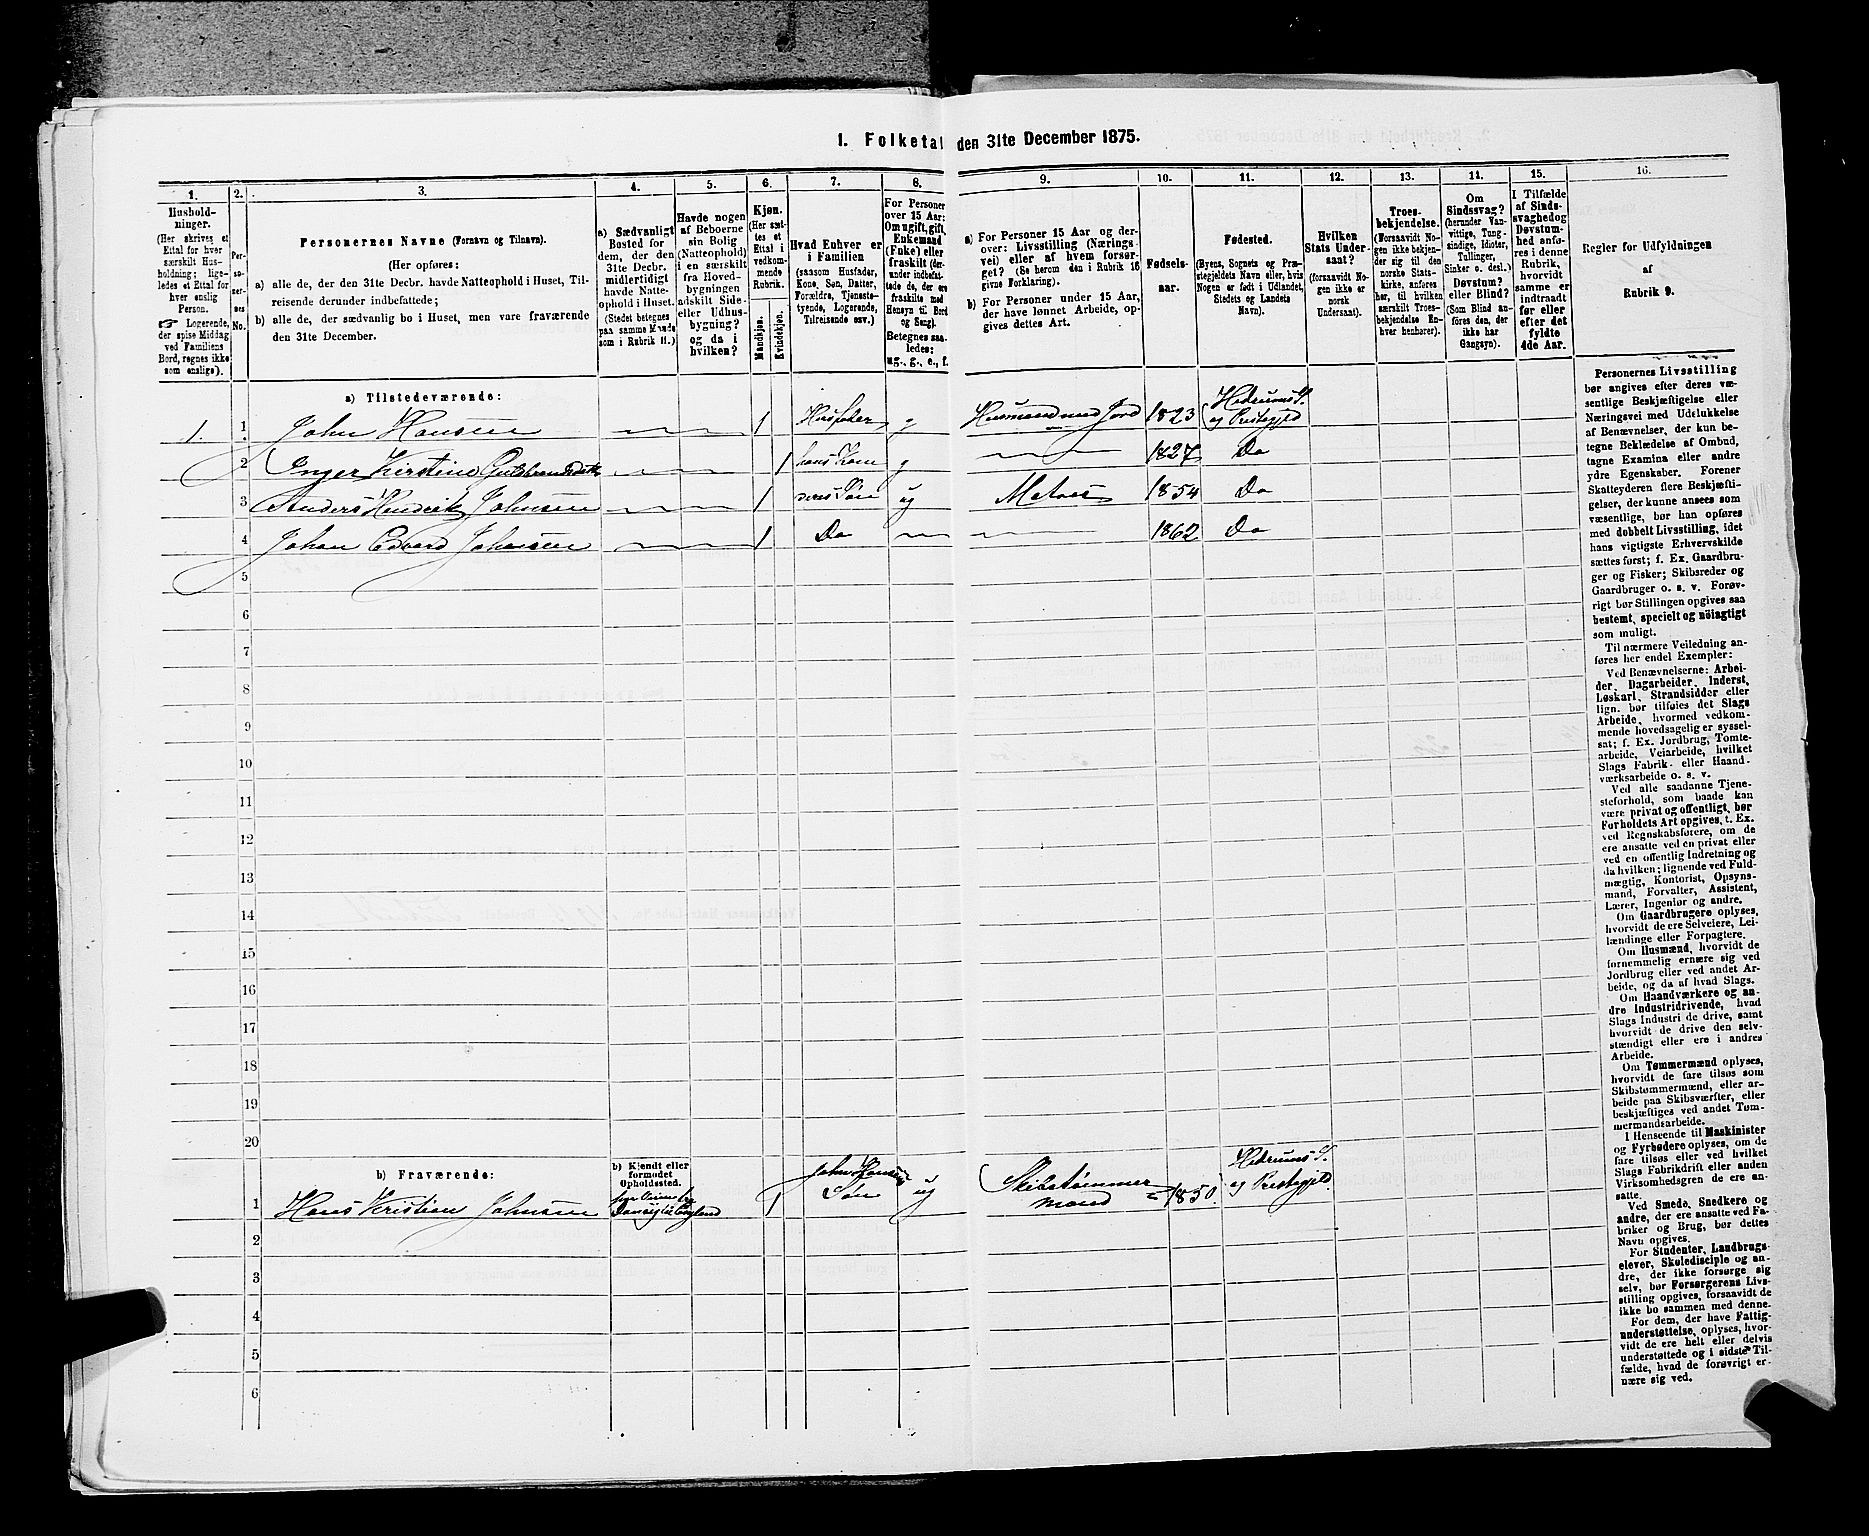 1. Folketal den 31te December 1875.
1.
Hushold-
ninger.
(Her skrives et
Ettal for hver
særskilt Hus-
holdning; lige-
ledes et Ettal for
hver enslig
Person.
☞ Logerende,
der spise Middag
ved Familiens
Bord, regnes ikke
som enslige).
2.
Per-
so-
ner-
nes
No.
3.
Personernes Navne (Fornavn og Tilnavn).
(Her opføres:
a) alle de, der den 31te Decbr. havde Natteophold i Huset, Til-
reisende derunder indbefattede;
b) alle de, der sædvanlig bo i Huset, men vare fraværende
den 31te December.
4.
a) Sædvanligt
Bosted for
dem, der den
31te Decbr.
midlertidigt
havde Natte-
ophold i Huset.
(Stedet betegnes
paa samme Maade
som i Rubrik 11.)
5.
Havde nogen
af Beboerne
sin Bolig
(Natteophold)
i en særskilt
fra Hoved-
bygningen
adskilt Side-
eller Udhus-
bygning?
og da i
hvilken?
6.
Kjøn.
(Her sæt-
tes et
Ettal i
vedkom-
mende
Rubrik.
Mandkjøn.
Kvindekjøn.
7.
Hvad Enhver er
i Familien
(saasom Husfader,
Kone, Søn, Datter,
Forældre, Tjeneste-
tyende, Logerende,
Tilreisende osv.)
8.
For Personer
over 15 Aar:
Om ugift, gift,
Enkemand
(Enke) eller
fraskilt (der-
under indbefat-
tede de, der ere
fraskilte med
Hensyn til Bord
og Seng).
Betegnes saa-
ledes:
ug., g., e., f.
9.
a) For Personer 15 Aar og der-
over: Livsstilling (Nærings-
vei) eller af hvem forsør-
get? (Se herom den i Rubrik 16
givne Forklaring).
b) For Personer under 15 Aar,
der have lønnet Arbeide, op-
gives dettes Art.
10.
Fødsels-
aar.
11.
Fødested.
(Byens, Sognets og Præ-
stegjeldets Navn eller, hvis
Nogen er født i Udlandet,
Stedets og Landets
Navn).
12.
Hvilken
Stats Under-
saat?
(forsaavidt No-
gen ikke er
norsk
Undersaat).
13.
Troes-
bekjendelse.
(Forsaavidt No-
gen ikke bekjen-
der sig til den
norske Stats-
kirke, anføres
her, til hvilken
særskilt Troes-
bekjendelse En-
hver henhører).
14.
Om
Sindssvag?
(herunder Van-
vittige, Tung-
sindige, Idioter,
Tullinger,
Sinker o. desl.)
Døvstum?
eller Blind?
(Som Blind an-
føres den, der
ikke har
Gangsyn).
15.
I Tilfælde
af Sinds-
svaghed og
Døvstum-
hed anfø-
res i denne
Rubrik,
hvorvidt
samme er
indtraadt
før eller
efter det
fyldte
4de Aar.
16.
Regler for Udfyldningen
af
Rubrik 9.
a) Tilstedeværende:
1. 1 John Hansen 1 Husfader g Husmand med Jord 1823 Hedrums S. og Prestegjeld
2 Inger Kirstine Gulbrandsdatter 1 hans Kone g 1827 Do
3 Anders Hendrik Johnsen 1 deres Søn ug Matros 1854 Do
4 Johan Edvard Johnsen 1 Do 1862 Do
5
6
7
8
9
10
11
12
13
14
15
16
17
18
19
20
b) Fraværende:
b) Kjendt eller
formodet
Opholdssted.
1 Hans Kristian Johnsen Danzig til England 1 John Hansens Søn ug Skibstømmermand 1850. Hedrums S. og Prestegjeld.
2
3
4
5
6
Personernes Livsstilling
bør angives efter deres væ-
sentlige Beskjæftigelse eller
Næringsvei med Udelukkelse
af Benævnelser, der kun be-
tegne Beklædelse af Ombud,
tagne Examina eller andre
ydre Egenskaber. Forener
Skatteyderen flere Beskjæfti-
gelser, der kunne ansees som
væsentlige, bør han opføres
med dobbelt Livsstilling, idet
hans vigtigste Erhvervskilde
sættes først; f. Ex. Gaardbru-
ger og Fisker; Skibsreder og
Gaardbruger o. s. v. Forøv-
rigt bør Stillingen opgives saa
bestemt, specielt og nöiagtigt
som muligt.
Til nærmere Veiledning an-
føres her endel Exempler:
Ved Benævnelserne: Arbei-
der, Dagarbeider, Inderst,
Løskarl, Strandsidder eller
lign. bør tilføies det Slags
Arbeide, hvormed vedkom-
mende hovedsagelig er syssel-
sat; f. Ex. Jordbrug, Tomte-
arbeide, Veiarbeide, hvilket
Slags Fabrik- eller Haand-
værksarbeide o. s. v.
Ved alle saadanne Tjene-
steforhold, som baade kan
være privat og offentligt, bør
Forholdets Art opgives, t. Ex.
ved Regnskabsførere, om de
ere ansatte ved en privat eller
ved en offentlig Indretning og
da hvilken; lignende ved Fuld-
mægtig, Kontorist, Opsyns-
mand, Forvalter, Assistent,
Lærer, Ingeniør og andre.
Om Gaardbrugere oplyses,
hvorvidt de ere Selveiere, Lei-
lændinge eller Forpagtere.
Om Husmænd, hvorvidt de
fornemmelig ernære sig ved
Jordbrug eller ved andet Ar-
beide, og da af hvad Slags.
Om Haandværkere og an-
dre Industridrivende, hvad
Slags Industri de drive, samt
hvorvidt de drive den selv-
stændigt eller ere i andres
Arbeide.
Om Tømmermænd oplyses,
hvorvidt de fare tilsøs som
Skibstømmermænd, eller ar-
beide paa Skibsværfter, eller
beskjæftiges ved andet Tøm-
mermandsarbeide.
I Henseende til Maskinister
og Fyrbødere oplyses, om de
fare tilsøs eller ved hvilket
Slags Fabrikdrift eller anden
Virksomhedsgren de ere an-
satte.
Ved Smede, Snedkere og
andre, der ere ansatte ved Fa-
briker og Brug, bør dettes
Navn opgives.
For Studenter, Landbrugs-
elever, Skoledisciple og an-
dre, der ikke forsørge sig
selv, bør Forsørgerens Livs-
stilling opgives, forsaavidt de
ikke bo sammen med denne.
For dem, der have Fattig-
understøttelse, oplyses, hvor-
vidt de ere helt eller delvis
understøttede og i sidste Til-
fælde, hvad de forøvrigt er-
nære sig ved.